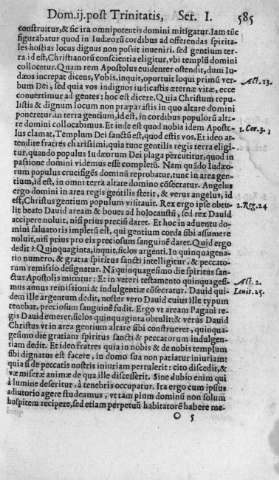 Dom.ij.post Trinitatis, Ser. I. 585
construatur, & sic ira omnipotentis domini mitigatur. Iam tūc
figurabatur quod in Iudæorū cordibus ad offerendas spirita-
les hostias locus dignus non posset inueniri, sed gentium ter-
ra id est, Christianorū conscientia eligitur, vbi templū domini
collocemus. Quam rem Apostolus euidenter ostendit, dum Iu-
dæos increpat dicens, Vobis, inquit, oportuit loqui primū ver-
bum Dei, sed quia vos indignos iudicastis æternæ vitæ, ecce
conuertimur ad gentes: hoc est dicere, Quia Christum repu-
listis & dignum locum non præparastis in quo altare domini
poneretur in terra gentium, id est, in cordibus populorū alta-
re domini collocabimus. Et inde est quod nobis idem Aposto-
lus clamat, Templum Dei sanctū est, quod estis vos. Et ideo at-
tendite fratres charissimi, quia tunc gentilis regis terra eligi-
tur, quando populus Iudæorum Dei plaga percutitur, quod in
passione domini videmus esse completū. Nam quādo Iudæo-
rum populus crucifigēs dominū reprobatur, tunc in area gen-
tium, id est, in omni terra altare domino cōsecratur. Angelus
ergo domini in area regis gentilis stetit, & verus angelus, id
est, Christus gentium populum visitauit. Rex ergo ipse obtu-
lit beato Dauid aream & boues ad holocaustū, sed rex Dauid
accipere noluit, nisi prius precium daret. Et hoc in aduentu do-
mini saluatoris impletū est, qui gentium corda sibi assumere
noluit, nisi prius pro eis preciosum sanguinē daret. Quid ergo
dedit? Quinquaginta, inquit, siclos argenti. In quinquagena-
rio numero, & gratia spiritus sancti intelligitur, & peccato-
rum remissio designatur. Nā quinquagesimo die spiritus san-
ctus Apostolis mittitur: Et in veteri testamento quinquagesi-
mus annus remissioni & indulgentiæ cōsecratur. Dauid qui-
dem ille argentum dedit, noster vero Dauid cuius ille typum
tenebat, preciosum sanguinē fudit. Ergo vt aream Pagani re-
gis Dauid emeret, siclos quinquaginta obtulit: & verus Dauid
Christus vt in area gentium altare sibi construeret, quinqua-
gesimo die gratiam spiritus sancti & peccatorum indulgen-
tiam dedit. Et ideo fratres quia in nobis & de nobis templum
sibi dignatus est facere, in domo sua non patiatur iniuriam:
quia si de peccatis nostris iniuriam pertulerit: cito discedit, &
væ miseræ animæ de qua ille discesserit. Sine dubio enim qui
à lumine deseritur, à tenebris occupatur. Ita ergo cum ipsius
adiutorio agere studeamus, vt iam pium dominū non solum
hospitem recipere, sed etiam perpetuū habitatorē habere me-
O 5
Act. 13.
1.Cor. 3.
2.Reg. 24.
Act. 2.
Leuit. 25.